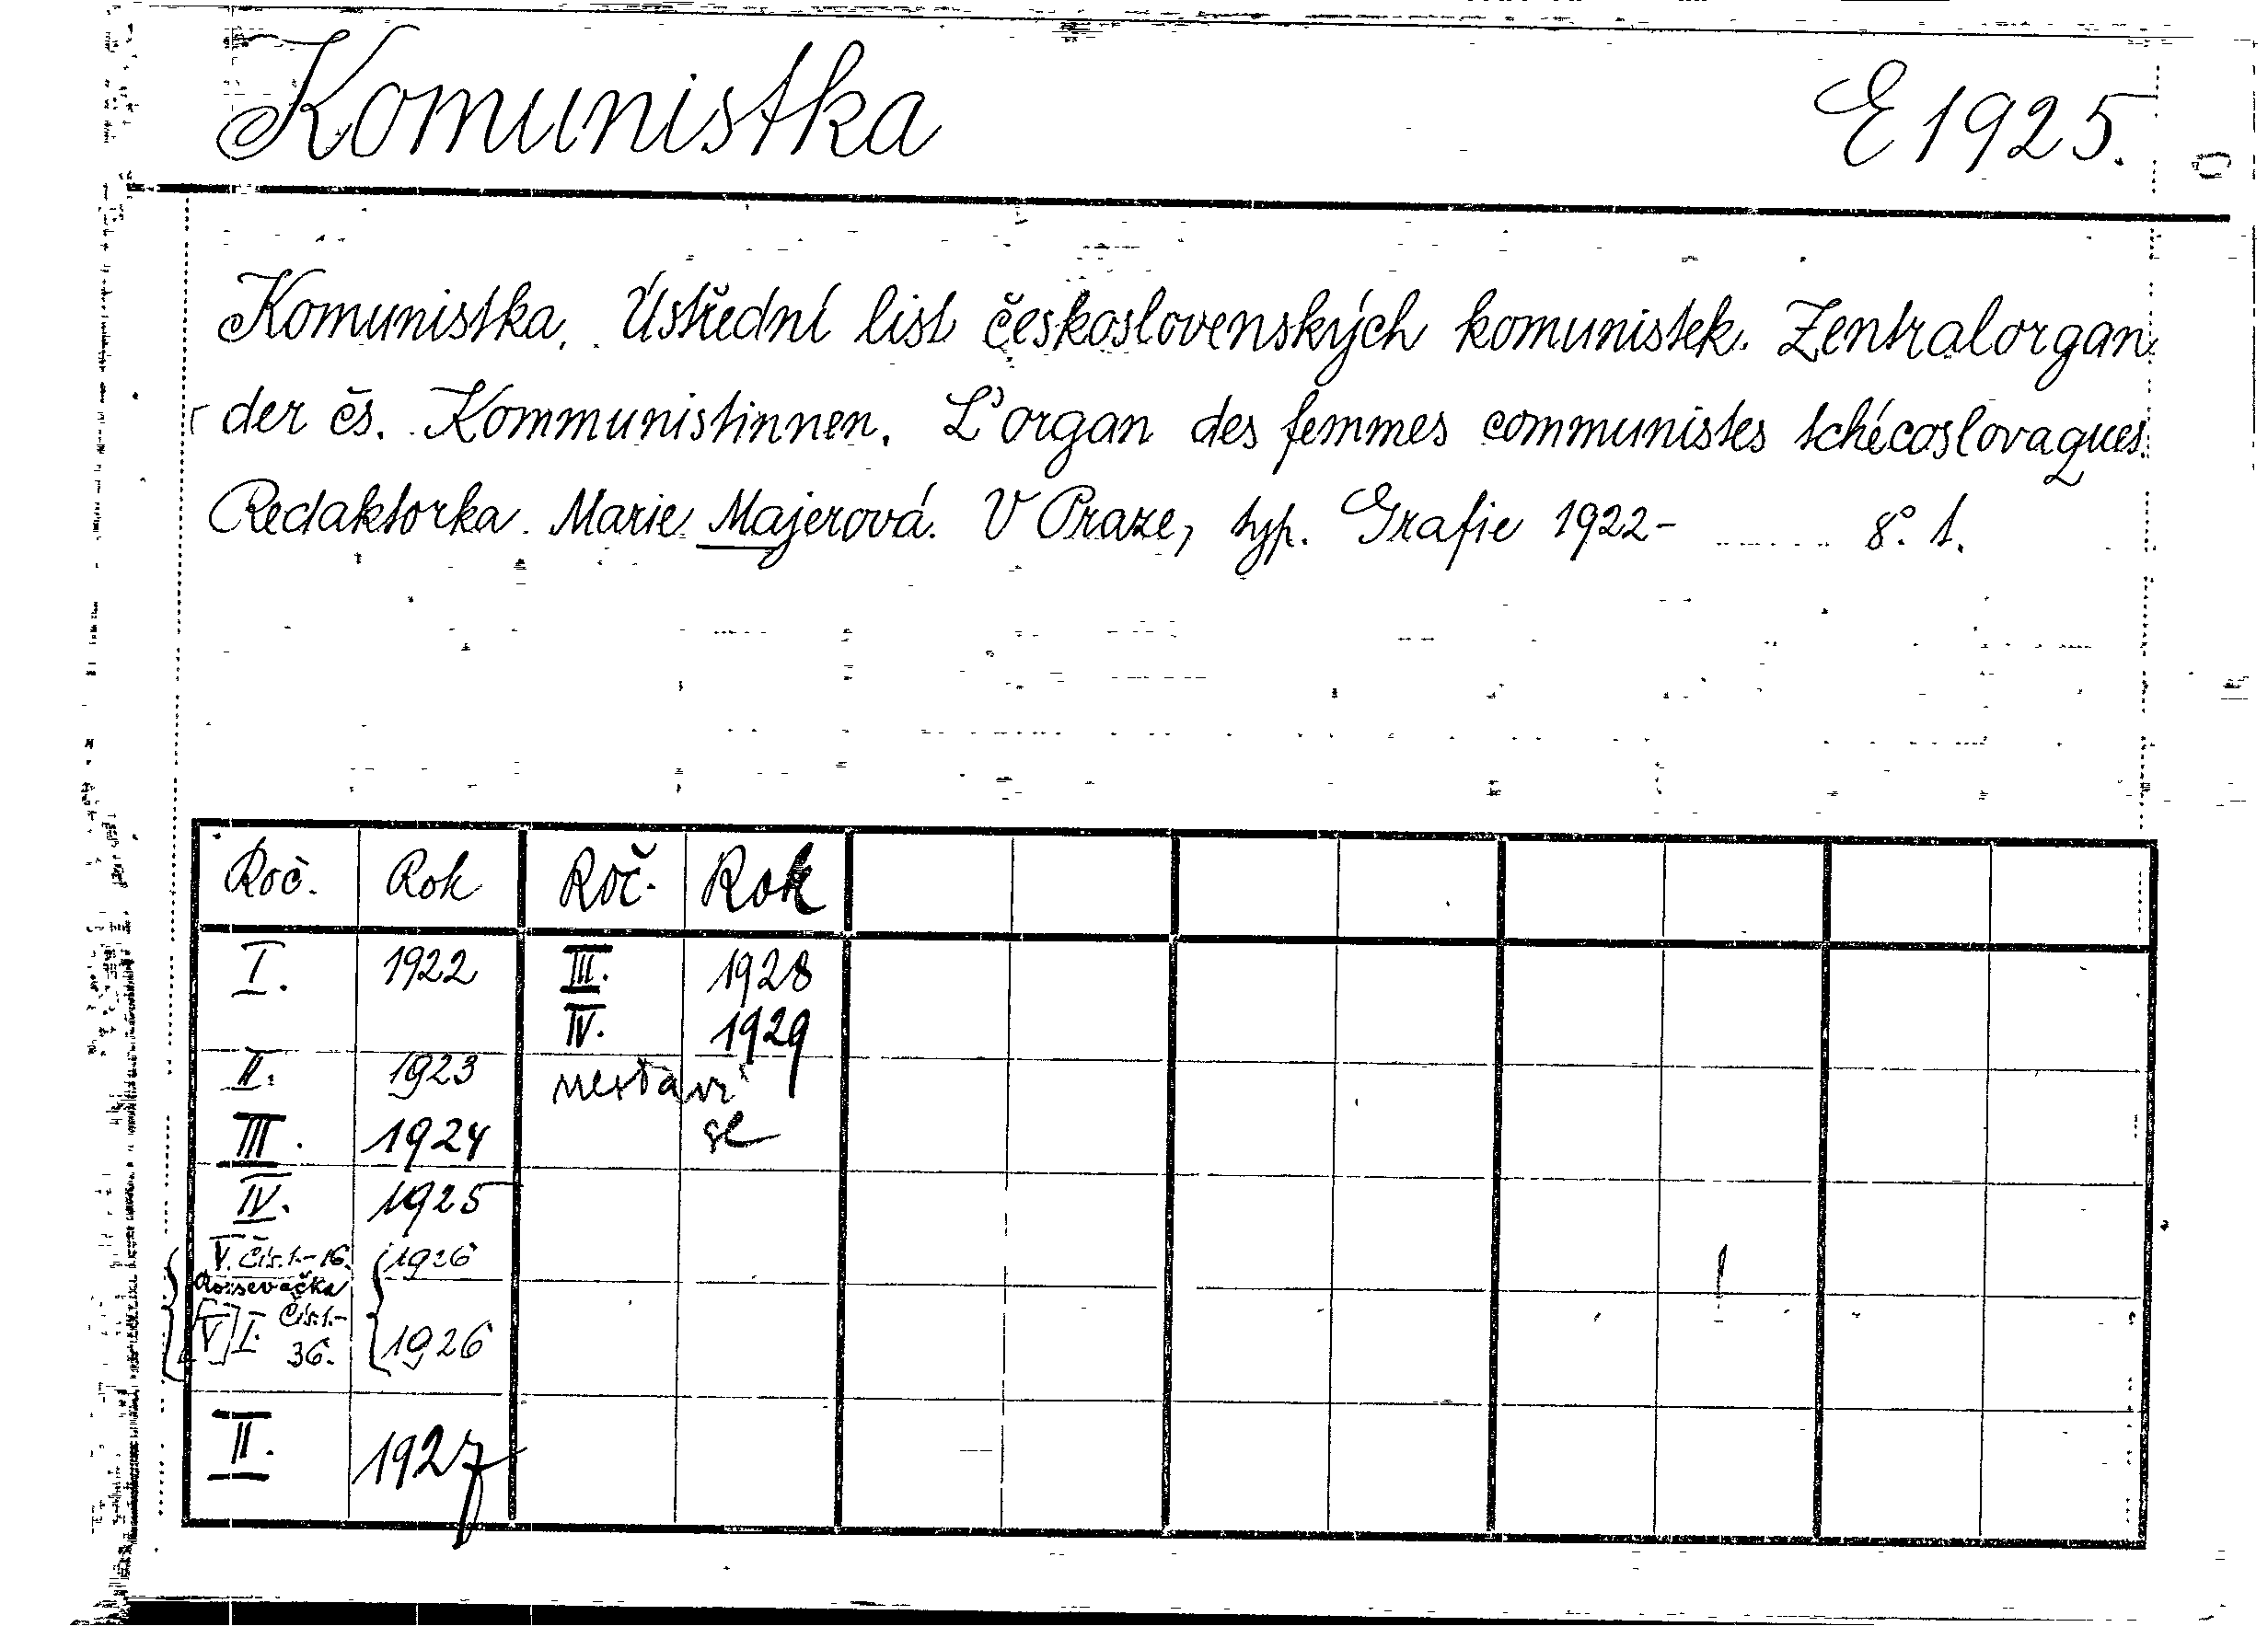 Komunistka E 1925.
Komunistka. Ústřední list československých komunistek. Zentralorgan
der čs. Kommunistinnen. L'organ des femmes communistes tchécoslovaques.
Redaktorka Marie Majerová. V Praze, typ. Grafie 1922- 8°. 1.
Roč. Rok Roč. Rok
I. 1922 III. 1928
IV. 1929
II. 1923 nestaví
se
III. 1924
IV. 1925
V. Čís. 1.-16. 1926
Rozsevačka
[V] I. Čís. 1.- 1926
36.
II. 1927